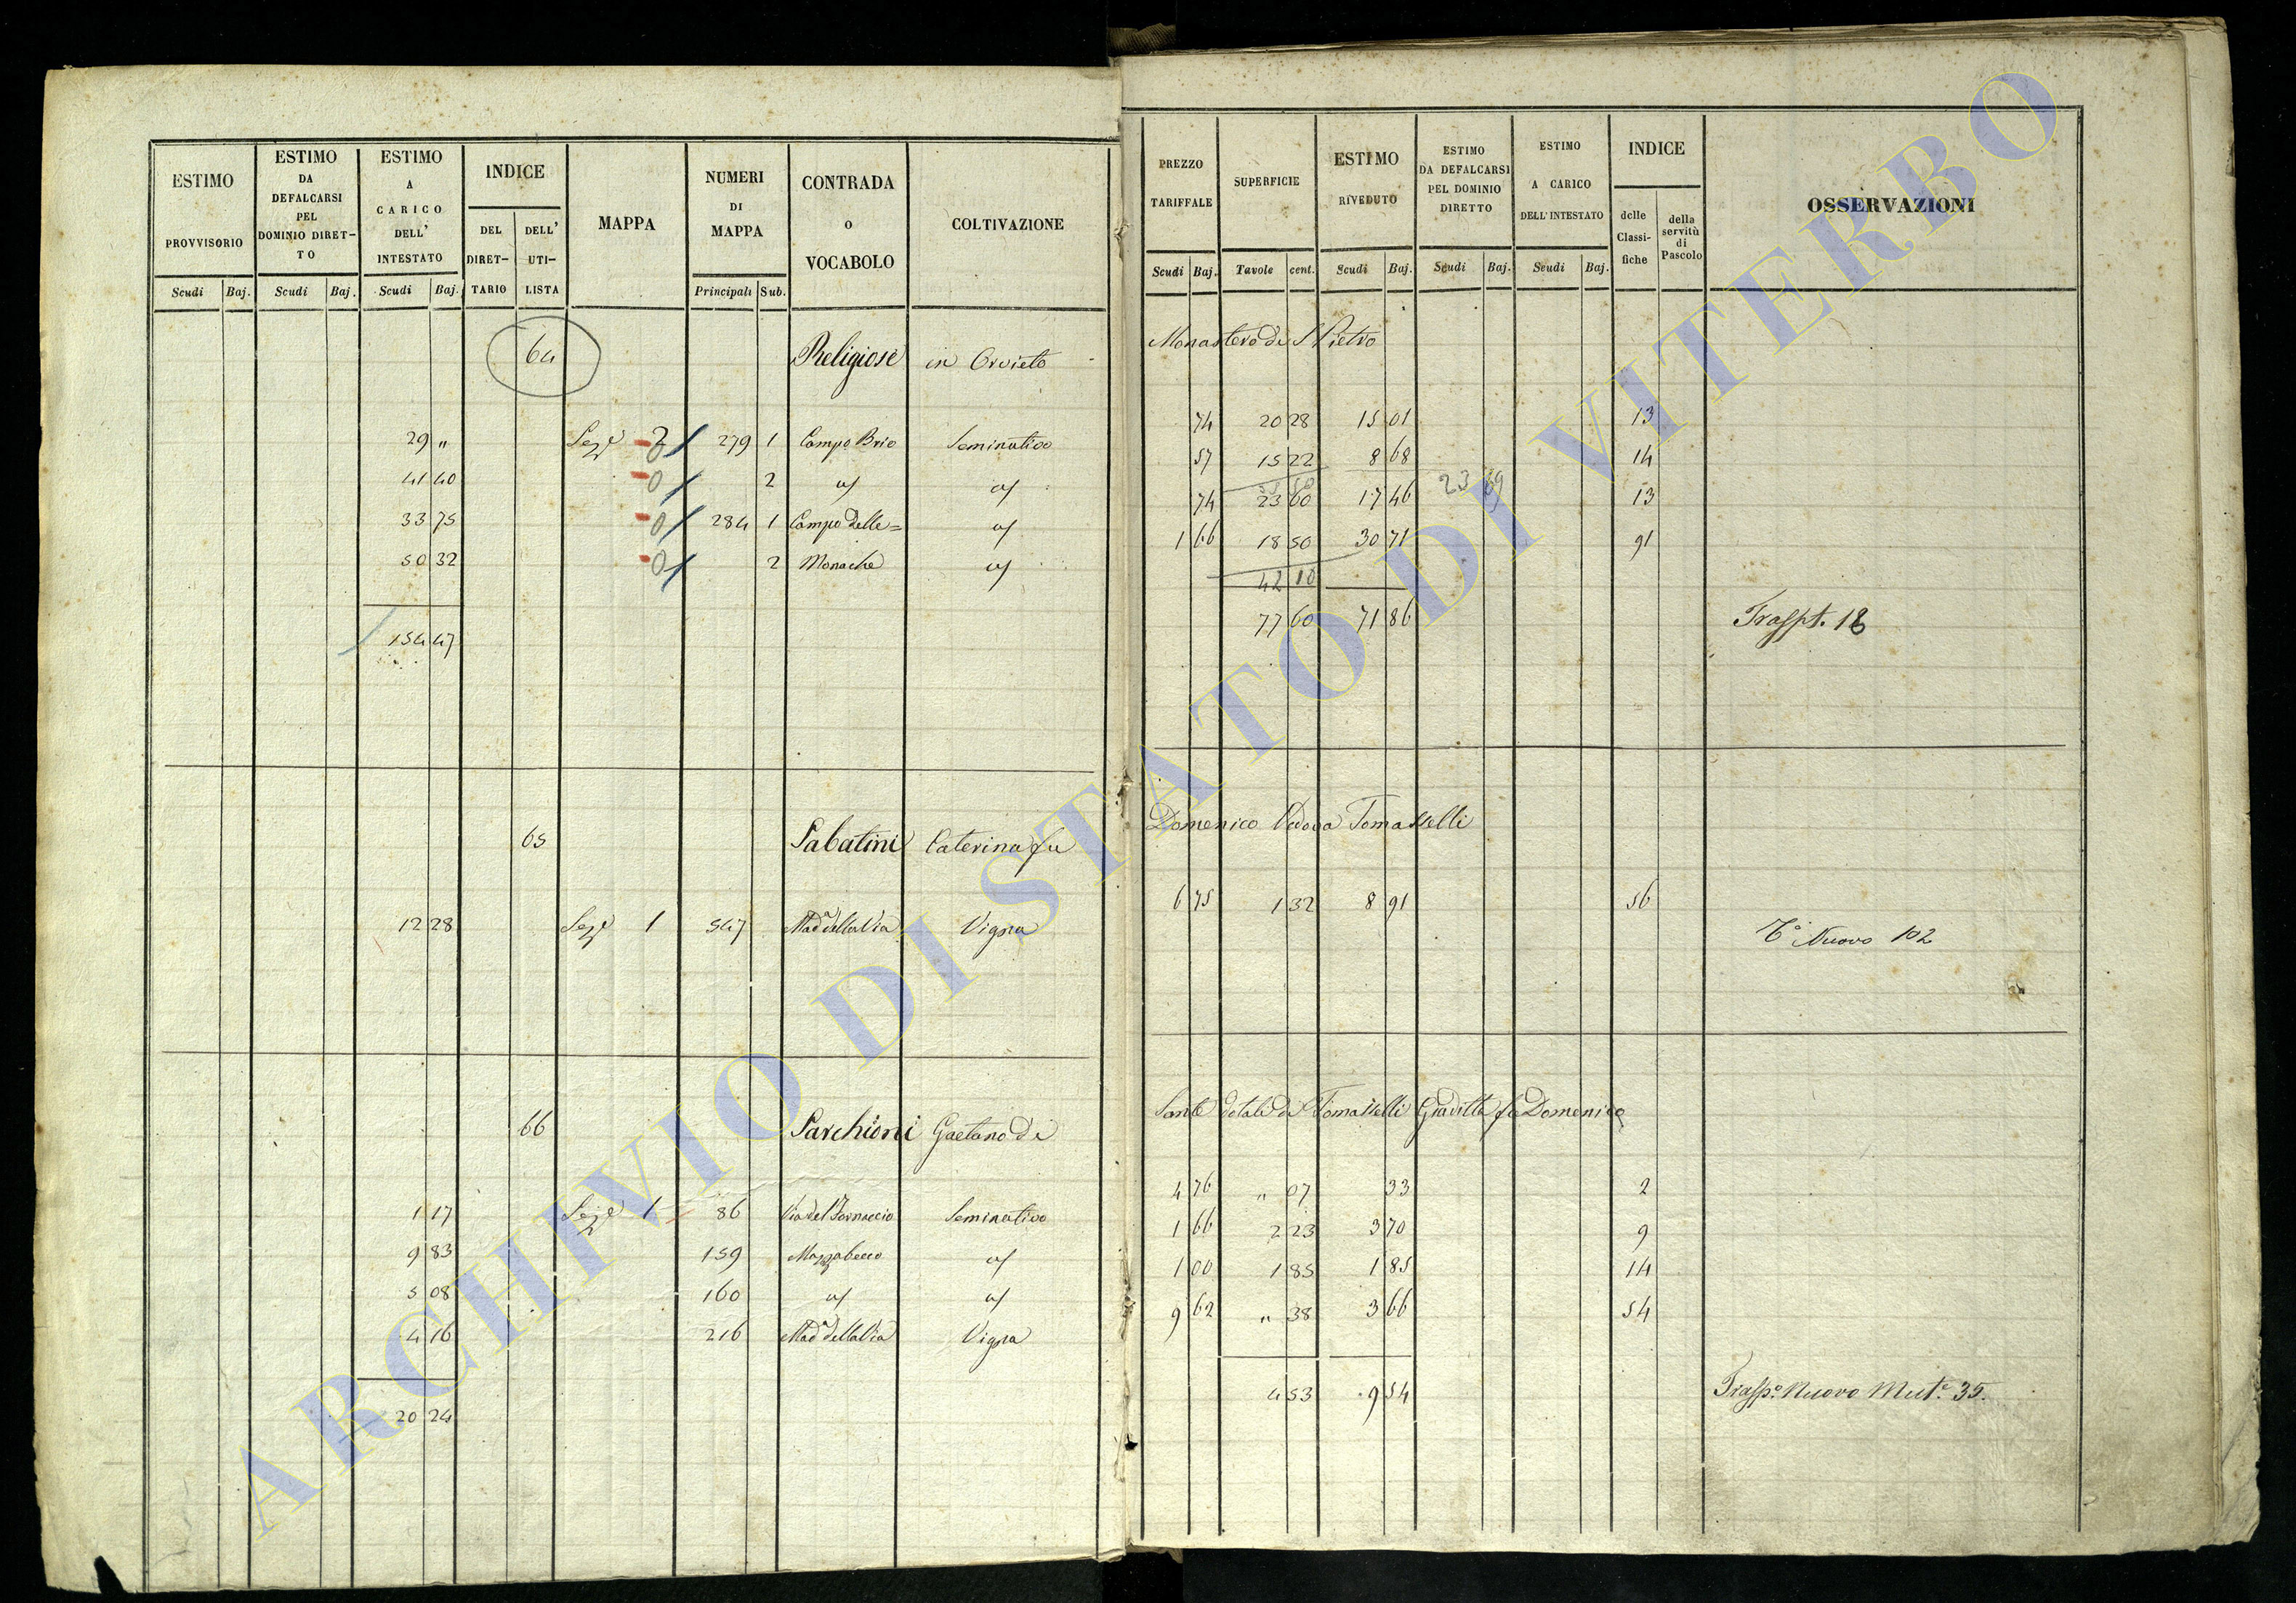 ESTIMO PROVVISORIO
ESTIMO DA DEFALCARSI PEL DOMINIO DIRET-TO
ESTIMO A CARICO DELL' INTESTATO
INDICE
DEL DIRET-TARIO
DELL' UTI-LISTA
MAPPA
NUMERI DI MAPPA
CONTRADA o VOCABOLO
COLTIVAZIONE
PREZZO TARIFFALE
SUPERFICIE
ESTIMO RIVEDUTO
ESTIMO DA DEFALCARSI PEL DOMINIO DIRETTO
ESTIMO A CARICO DELL'INTESTATO
INDICE
delle Classi-fiche
della servitù di Pascolo
OSSERVAZIONI
Scudi Baj. Scudi Baj. Scudi Baj. Principali Sub.
Scudi Baj. Tavole cent. Scudi Baj. Scudi Baj. Scudi Baj.
64 Religiose in Orvieto Monastero di S Pietro
29 " Sez.e 2 279 1 Campo Brio Seminativo 74 20 28 15 01 13
41 40 0 2 57 15 22 8 68 14
33 75 0 284 1 Campo delle= 74 23 60 17 46 23 69 13
50 32 0 2 Monache 1 66 18 50 30 71 91
42 10
154 47 77 60 71 86 Traspt. 18
65 Sabatini Caterina fu Domenico Vedova Tomasselli
12 28 Sez.e 1 547 Mad.a della Via Vigna 6 75 1 32 8 91 56
T.o Nuovo 102
66 Sarchioni Gaetano di Sante dotale di Tomasselli Giuditta fu Domenico
1 17 Sez.e 1 86 Via del Fornaccio Seminativo 4 76 " 07 33 2
9 83 159 Mazzabecco 1 66 2 23 3 70 9
5 08 160 1 00 1 85 1 85 14
4 16 216 Mad.a della Via Vigna 9 62 " 38 3 66 54
20 24 4 53 9 54 Trasp.o Nuovo Mut.e 35.
ARCHIVIO DI STATO DI VITERBO